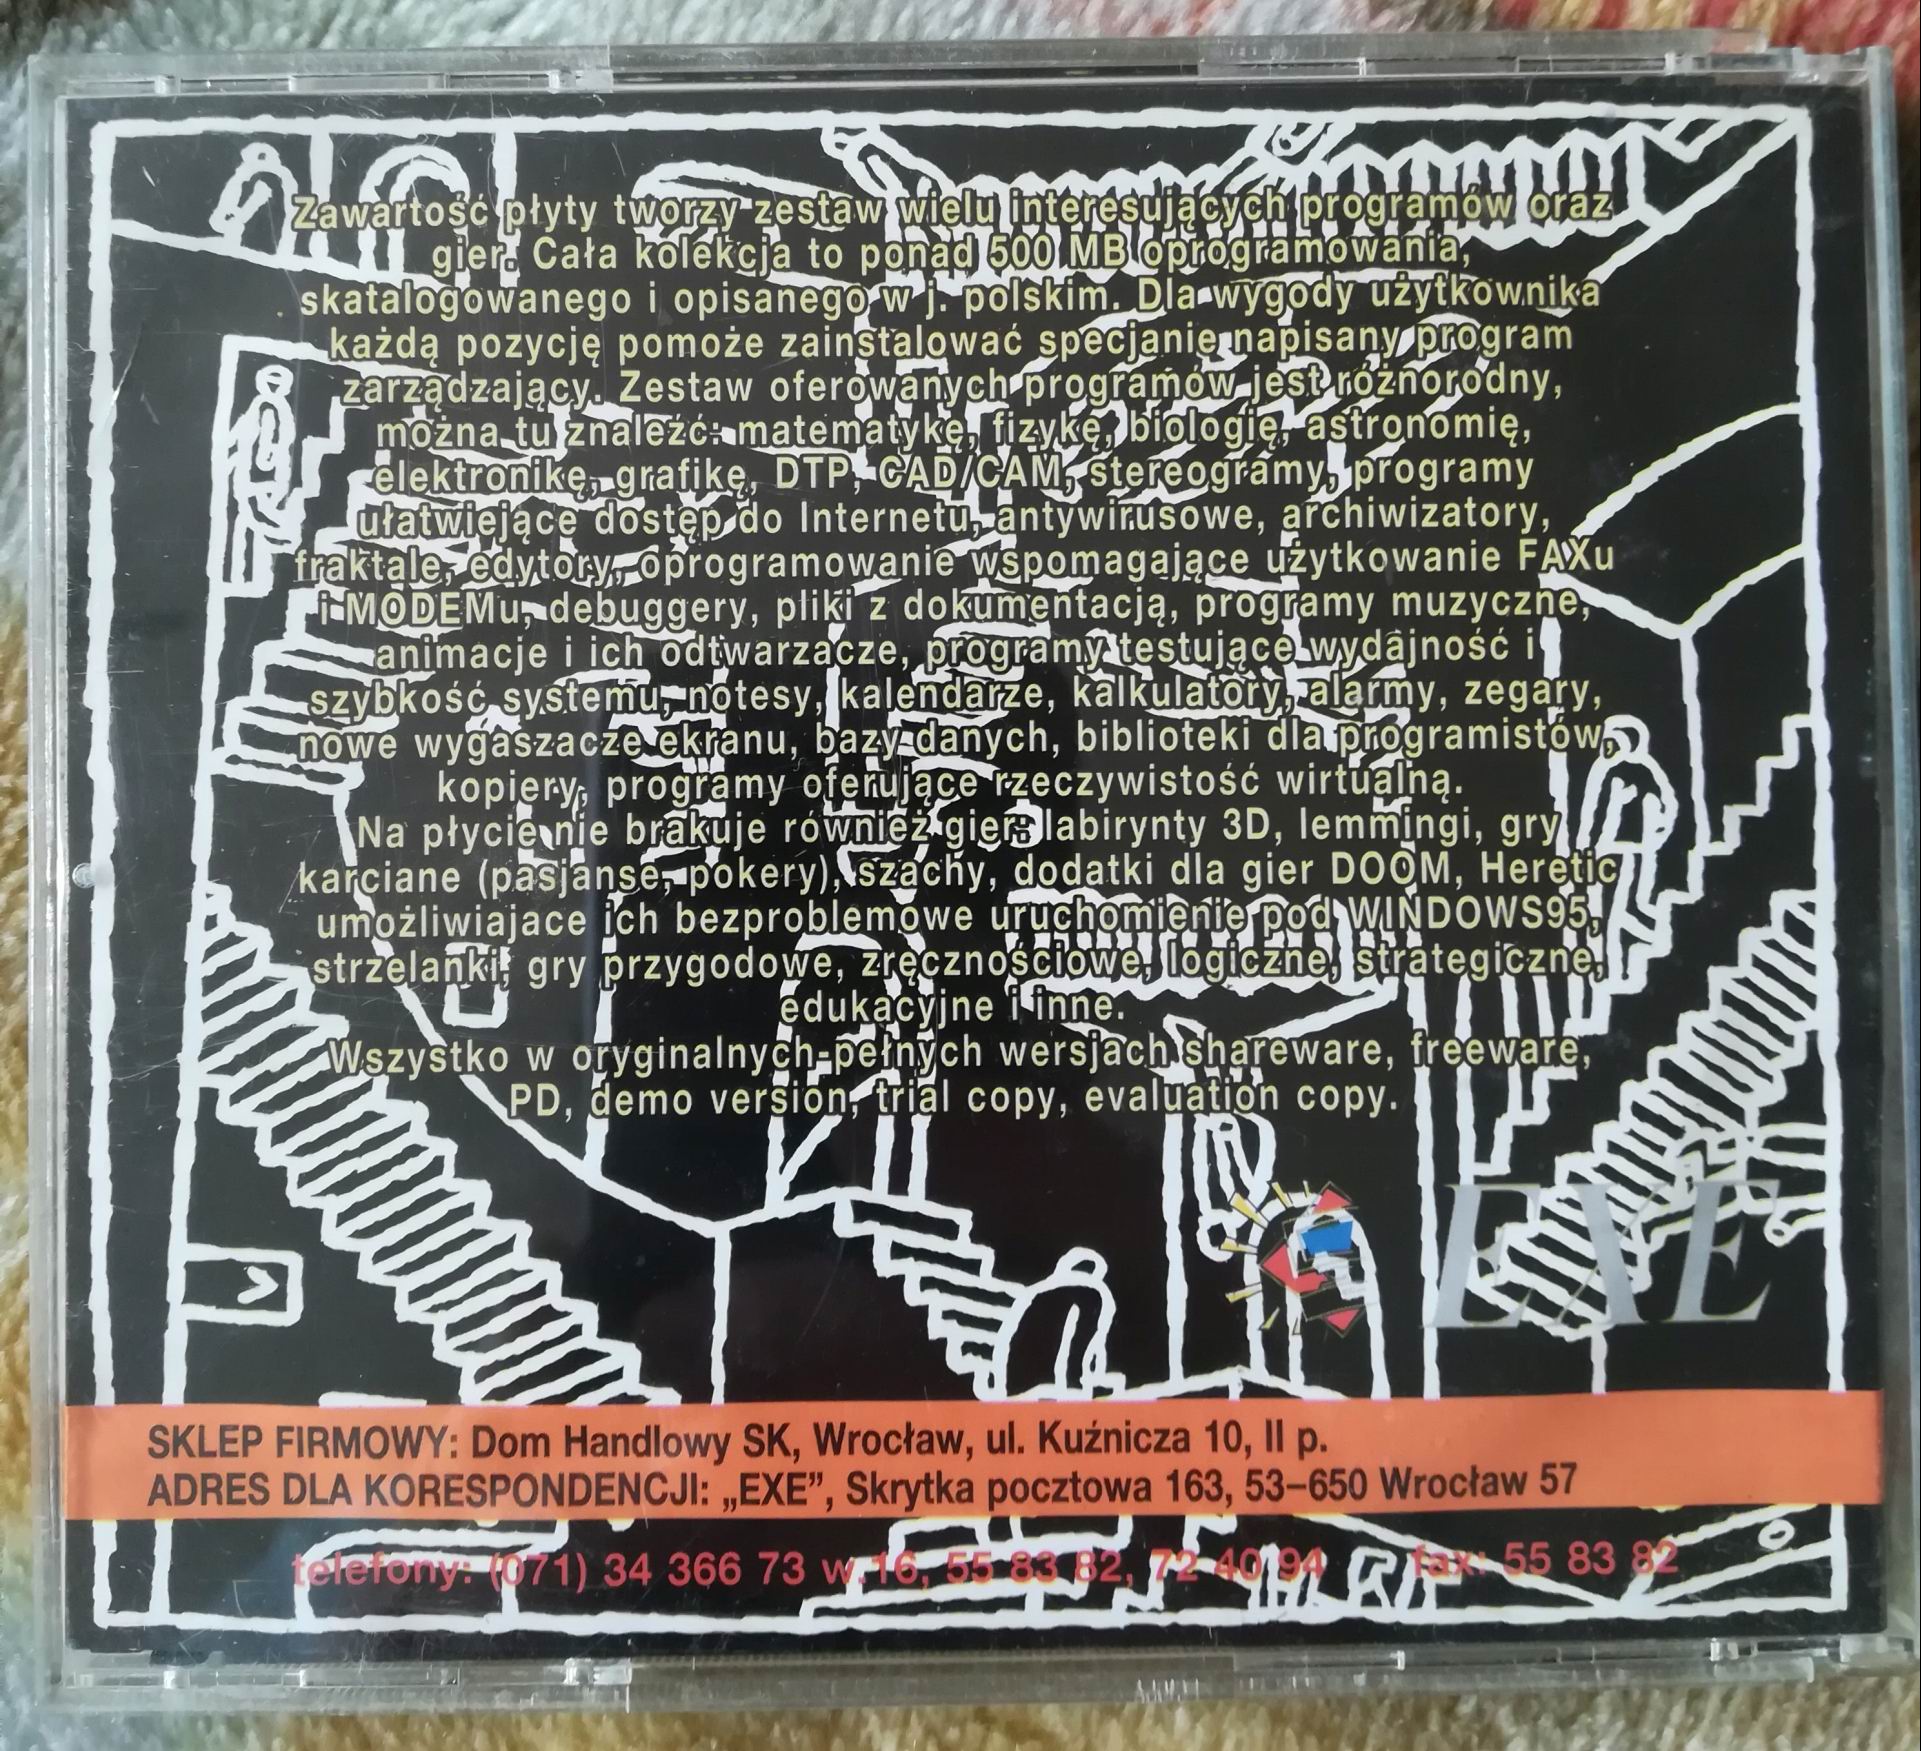 Zawartość płyty tworzy zestaw wielu interesujących programów oraz
gier. Cała kolekcja to ponad 500 MB oprogramowania,
skatalogowanego i opisanego w j. polskim. Dla wygody użytkownika
każdą pozycję pomoże zainstalować specjanie napisany program
zarządzający. Zestaw oferowanych programów jest różnorodny,
można tu znaleźć: matematykę, fizykę, biologię, astronomię,
elektronikę, grafikę, DTP, CAD/CAM, stereogramy, programy
ułatwiejące dostęp do Internetu, antywirusowe, archiwizatory,
fraktale, edytory, oprogramowanie wspomagające użytkowanie FAXu
i MODEMu, debuggery, pliki z dokumentacją, programy muzyczne,
animacje i ich odtwarzacze, programy testujące wydajność i
szybkość systemu, notesy, kalendarze, kalkulatory, alarmy, zegary,
nowe wygaszacze ekranu, bazy danych, biblioteki dla programistów,
kopiery, programy oferujące rzeczywistość wirtualną.
Na płycie nie brakuje również gier: labirynty 3D, lemmingi, gry
karciane (pasjanse, pokery), szachy, dodatki dla gier DOOM, Heretic
umożliwiajace ich bezproblemowe uruchomienie pod WINDOWS95,
strzelanki, gry przygodowe, zręcznościowe, logiczne, strategiczne,
edukacyjne i inne.
Wszystko w oryginalnych-pełnych wersjach shareware, freeware,
PD, demo version, trial copy, evaluation copy.
EXE
SKLEP FIRMOWY: Dom Handlowy SK, Wrocław, ul. Kuźnicza 10, II p.
ADRES DLA KORESPONDENCJI: „EXE”, Skrytka pocztowa 163, 53–650 Wrocław 57
telefony: (071) 34 366 73 w.16, 55 83 82, 72 40 94 fax: 55 83 82